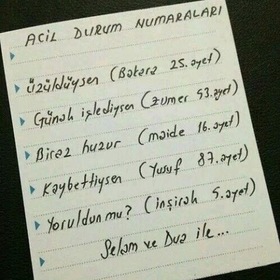 ACİL DURUM NUMARALARI
üzüldüysen (Bakara 25. ayet)
Günah işlediysen (Zumer 53. ayet)
Biraz huzur (maide 16. ayet)
Kaybettiysen (Yusuf 87. ayet)
Yoruldun mu? (inşirah 5. ayet)
Selam ve Dua ile...